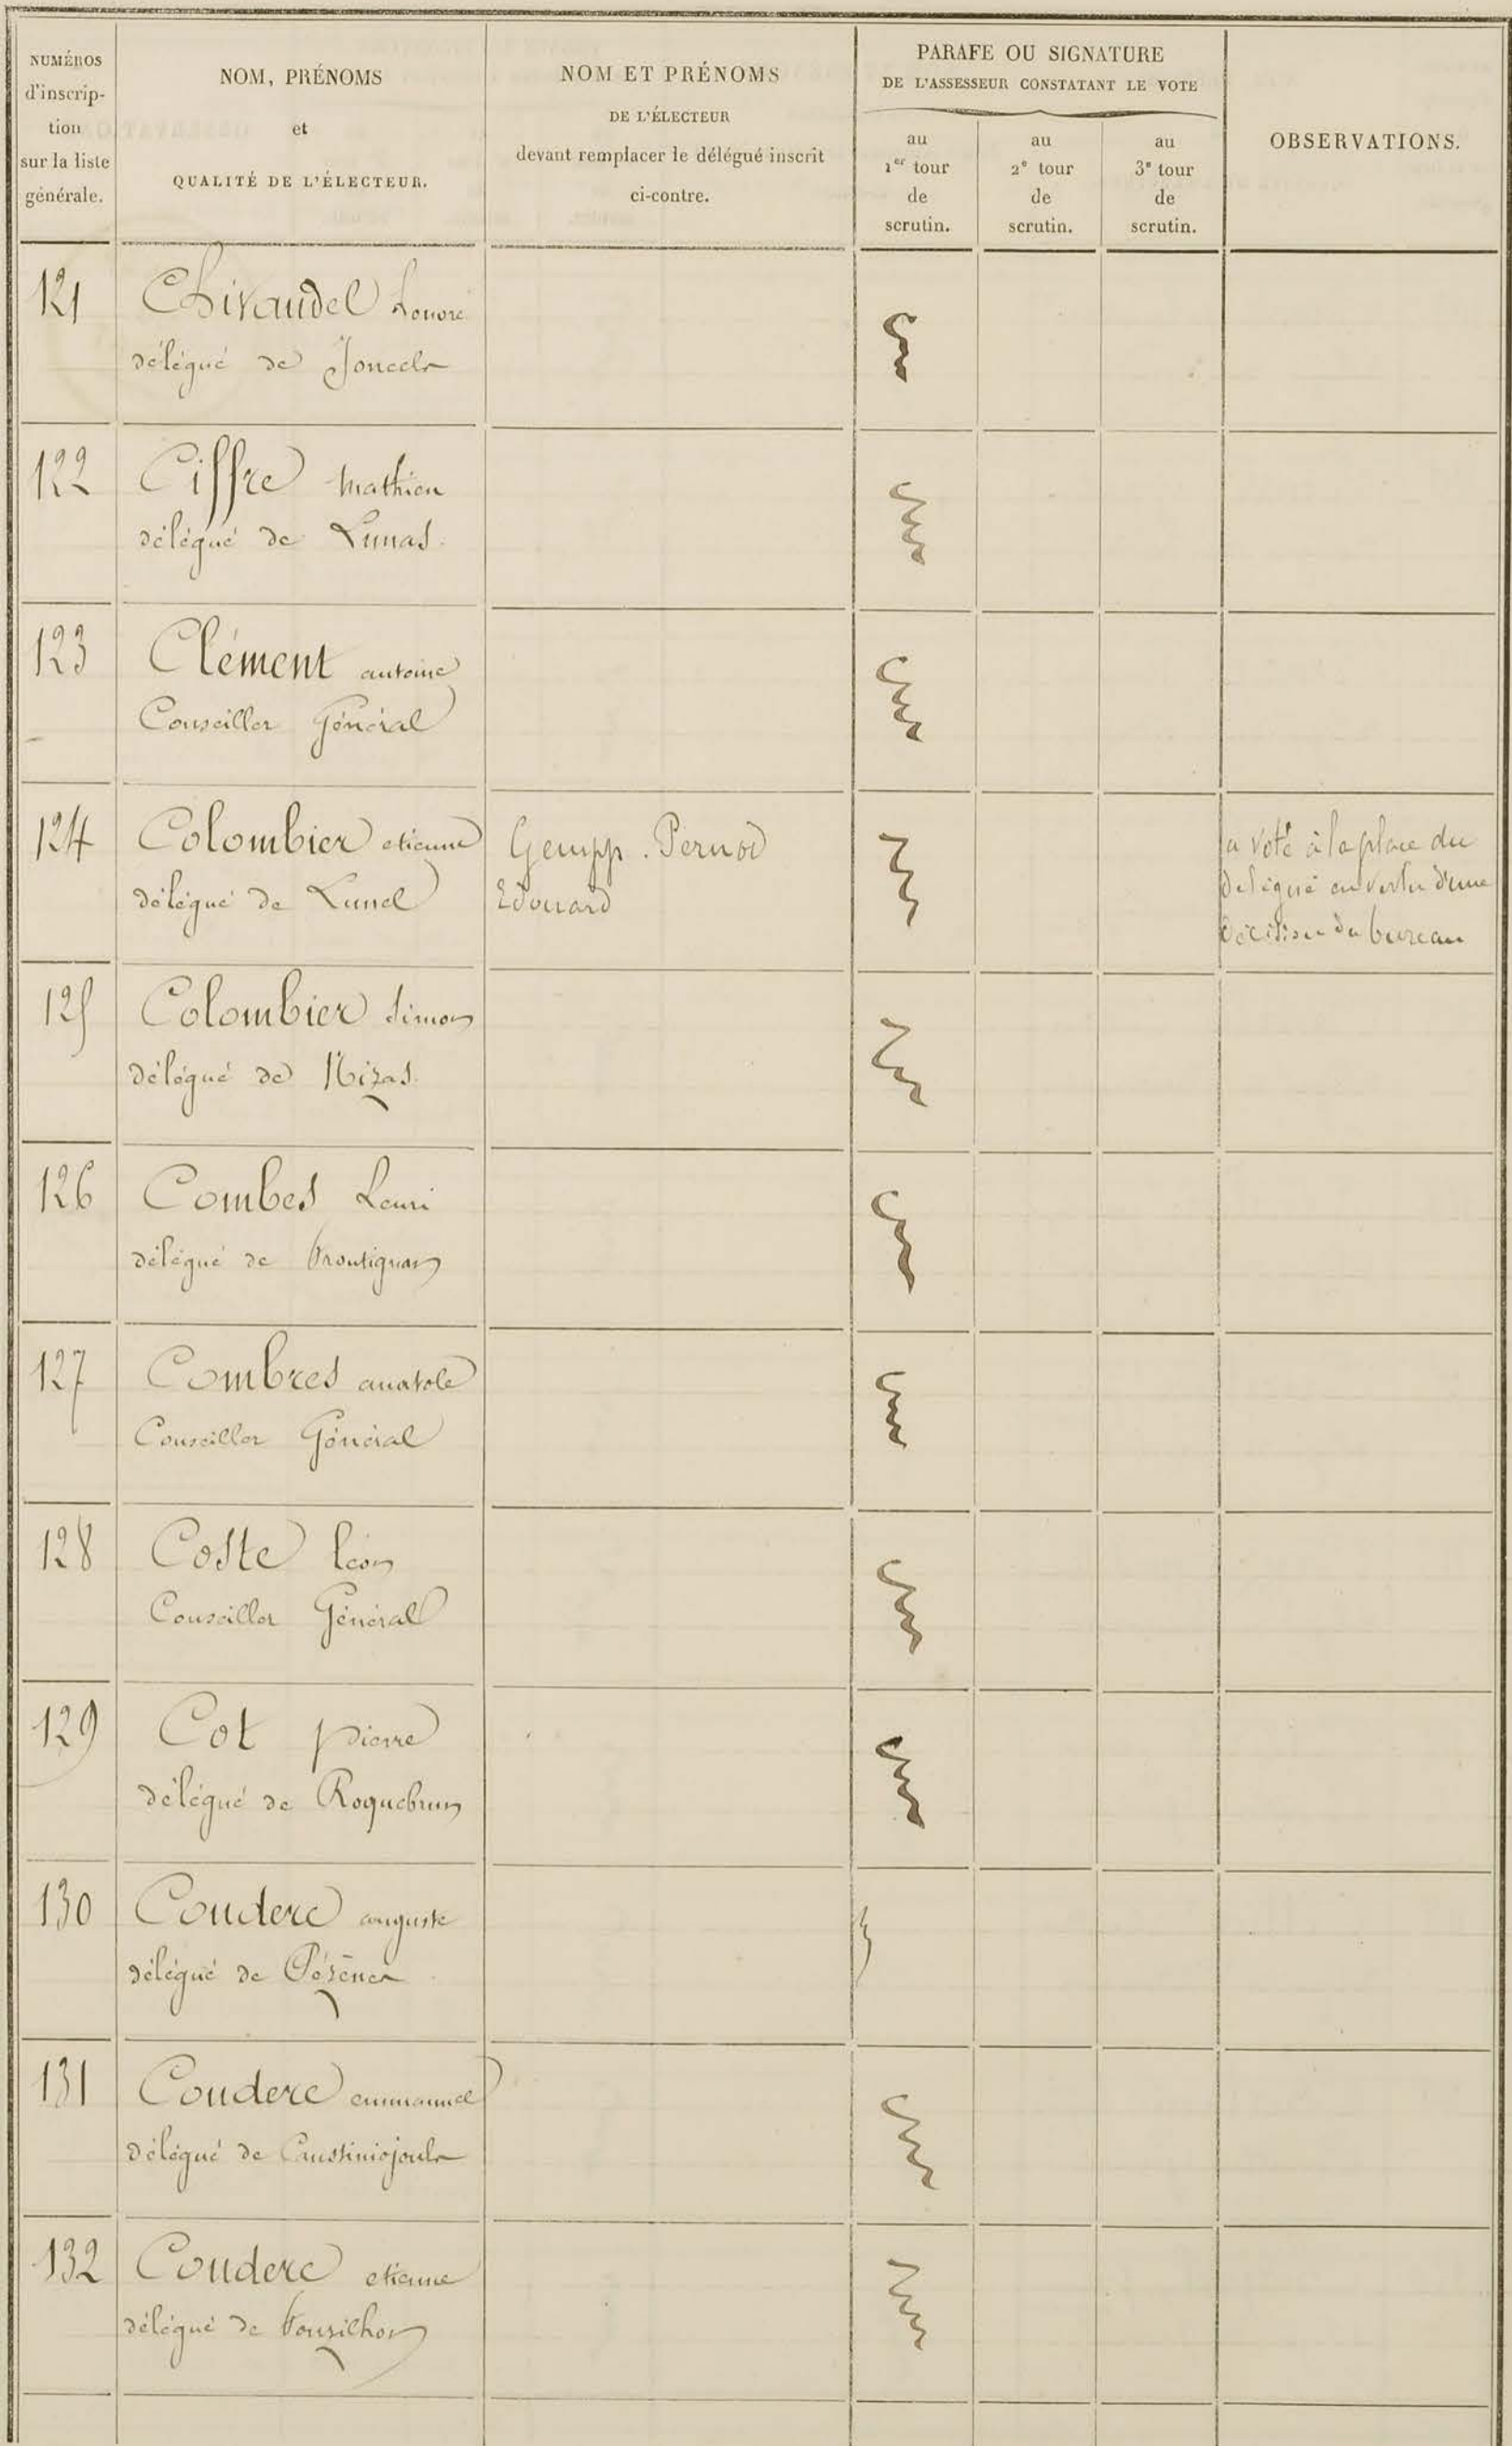 NUMÉROS
d'inscrip-
tion
sur la liste
générale.
NOM, PRÉNOMS
et
QUALITÉ DE L'ÉLECTEUR.
NOM ET PRÉNOMS
DE L'ÉLECTEUR
devant remplacer le délégué inscrit
ci-contre.
PARAFE OU SIGNATURE
DE L'ASSESSEUR CONSTATANT LE VOTE
au
1er tour
de
scrutin.
au
2e tour
de
scrutin.
au
3e tour
de
scrutin.
OBSERVATIONS.
121
Chivaudel honoré
délégué de Joncels
122
Ciffre Mathieu
délégué de Lunas.
123
Clément antoine
Conseiller Général
124
Colombier etienne
délégué de Lunel
Gempp. Pernod
Edouard
a voté à la place du
délégué en vertu d'une
décision du bureau
125
Colombier Simon
délégué de Nizas.
126
Combes henri
délégué de Frontignan
127
Combres anatole
Conseiller Général
128
Coste léon
Conseiller Général
129
Cot pierre
délégué de Roquebrun
130
Couderc auguste
délégué de Pézènes
131
Couderc emmanuel
délégué de Caussiniojouls
132
Couderc etienne
délégué de Fouzilhon